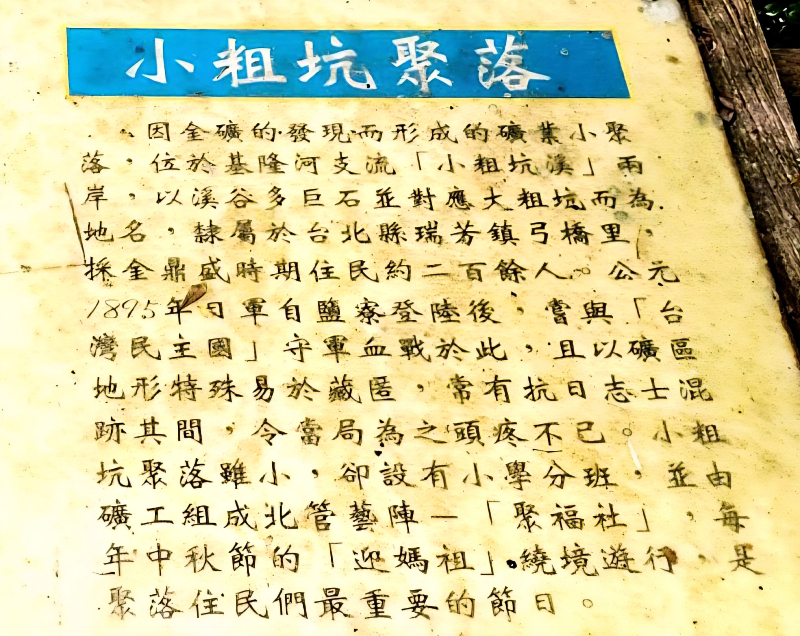 小粗坑聚落
因金礦的發現而形成的礦業小聚
落，位於基隆河支流「小粗坑溪」兩
岸，以溪谷多巨石並對應大粗坑而為
地名，隸屬於台北縣瑞芳鎮弓橋里，
採金鼎盛時期住民約二百餘人。公元
1895年日軍自鹽寮登陸後，嘗與「台
灣民主國」守軍血戰於此，且以礦區
地形特殊易於藏匿，常有抗日志士混
跡其間，令當局為之頭疼不已。小粗
坑聚落雖小，卻設有小學分班，並由
礦工組成北管藝陣－「聚福社」，每
年中秋節的「迎媽祖」繞境遊行，是
聚落住民們最重要的節日。